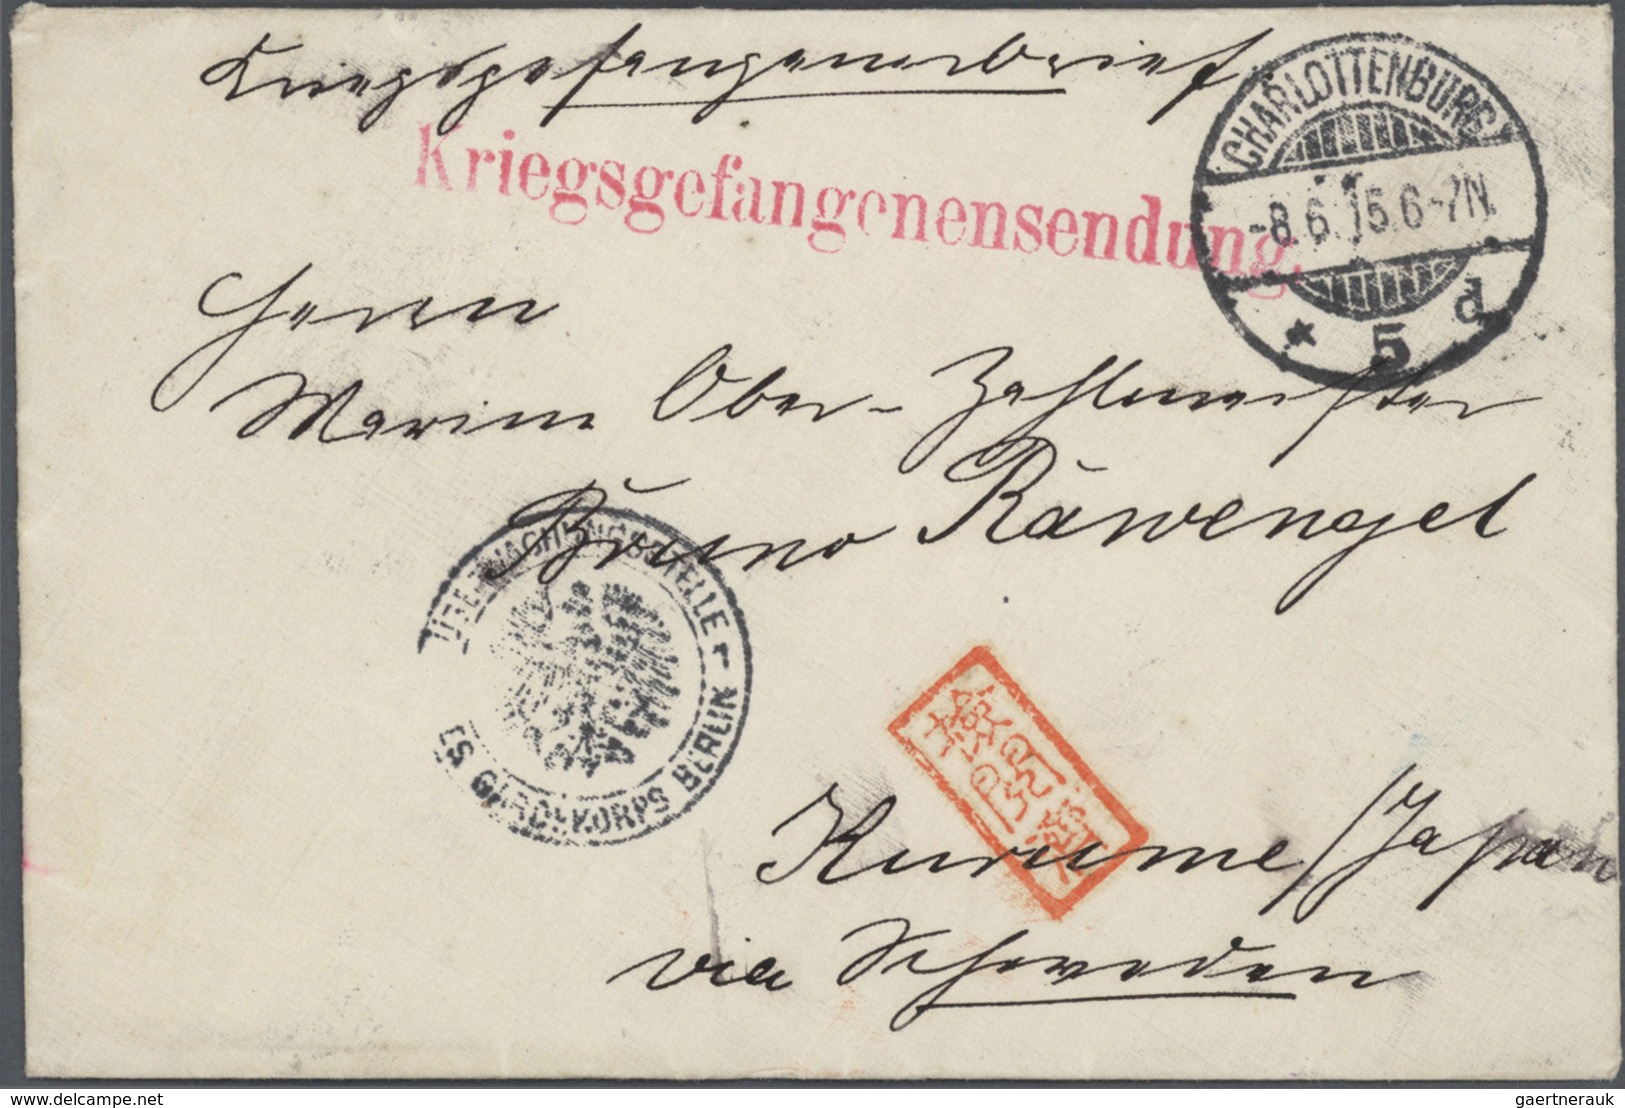 Kriegsgefangenenbrief
Kriegsgefangenensendung.
CHARLOTTENBURG
-8.6.15.6-7N.
* 5 d
Herrn
Marine Ober-Zahlmeister
Bruno Räwengel
ÜBERWACHUNGSSTELLE
ES GARDEKORPS BERLIN
Kurume/Japan
via Schweden
www.delcampe.net
gaertnerauk